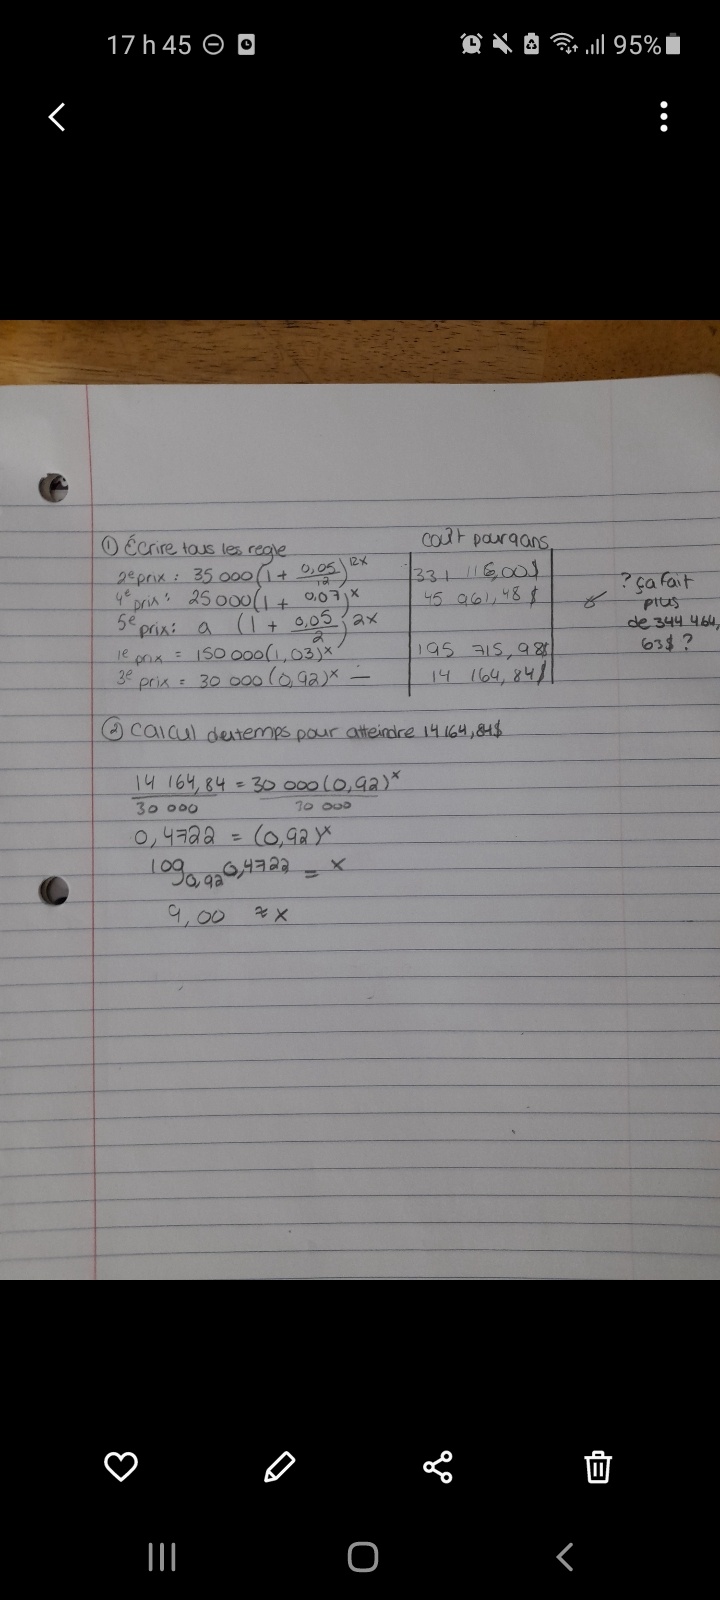 17 h 45
95%
① Écrire tous les regle
coût pour 9 ans
2e prix : 35 000 (1 + 0,05/12)^12x
331 116,00$
4e prix : 25 000 (1 + 0,07)^x
45 961,48 $
5e prix : a (1 + 0,05/2)^2x
1e prix = 150 000 (1,03)^x
195 715,98$
3e prix = 30 000 (0,92)^x —
14 164,84$
? ça fait
plus
de 344 464,
63$ ?
② Calcul du temps pour atteindre 14 164,84$
14 164,84 = 30 000 (0,92)^x
30 000
0,4722 = (0,92)^x
log0,92 0,4722 = x
9,00 ≈ x